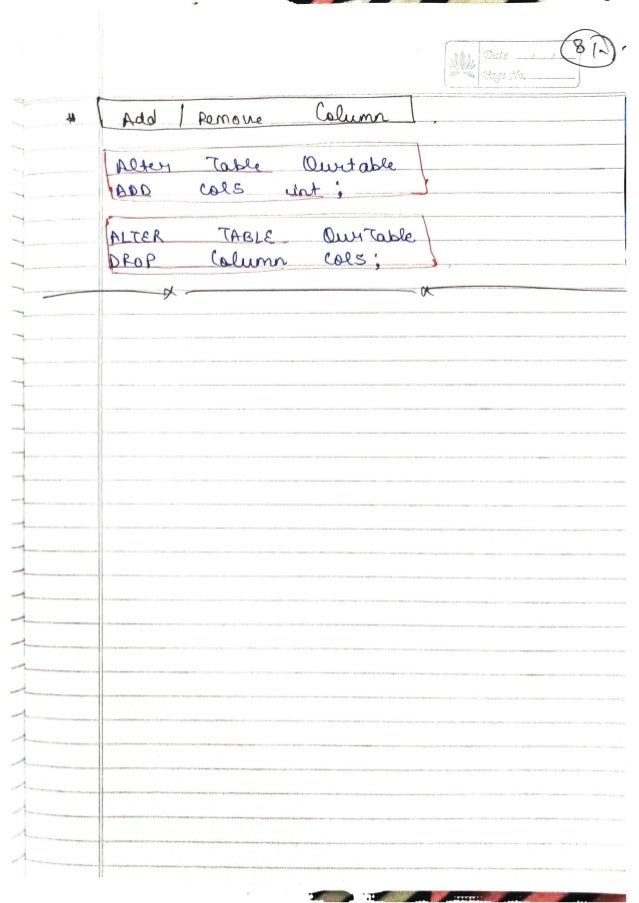 Date / /
Page No.
# Add / Remove Column
Alter Table Ourtable
ADD COLS int ;
ALTER TABLE OurTable
DROP Column COLS ;